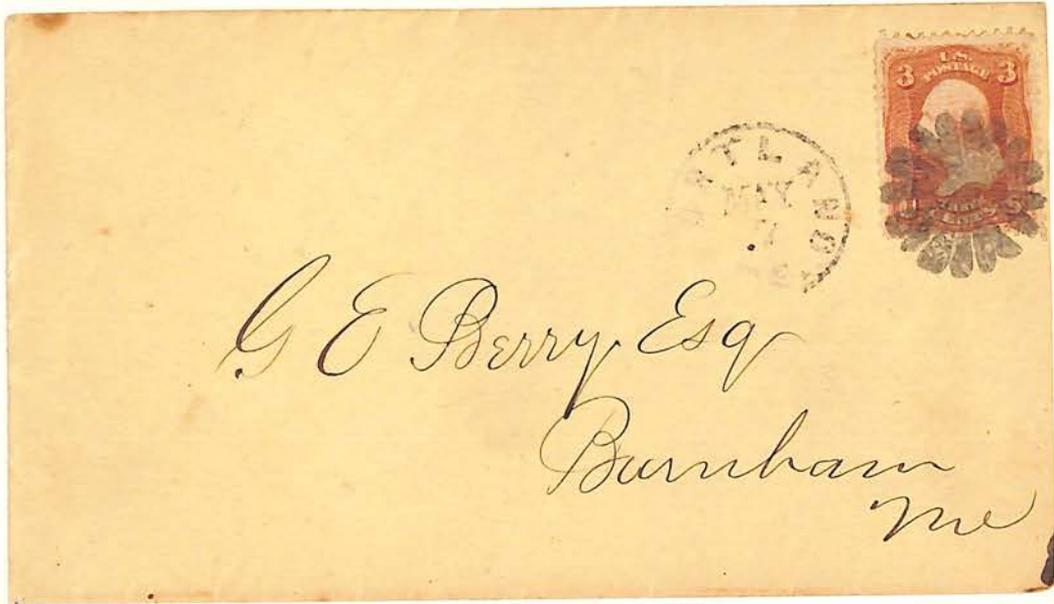 U.S.
POSTAGE
3 3
THREE
CENTS
MAY
G E Berry, Esq
Burnham
Me